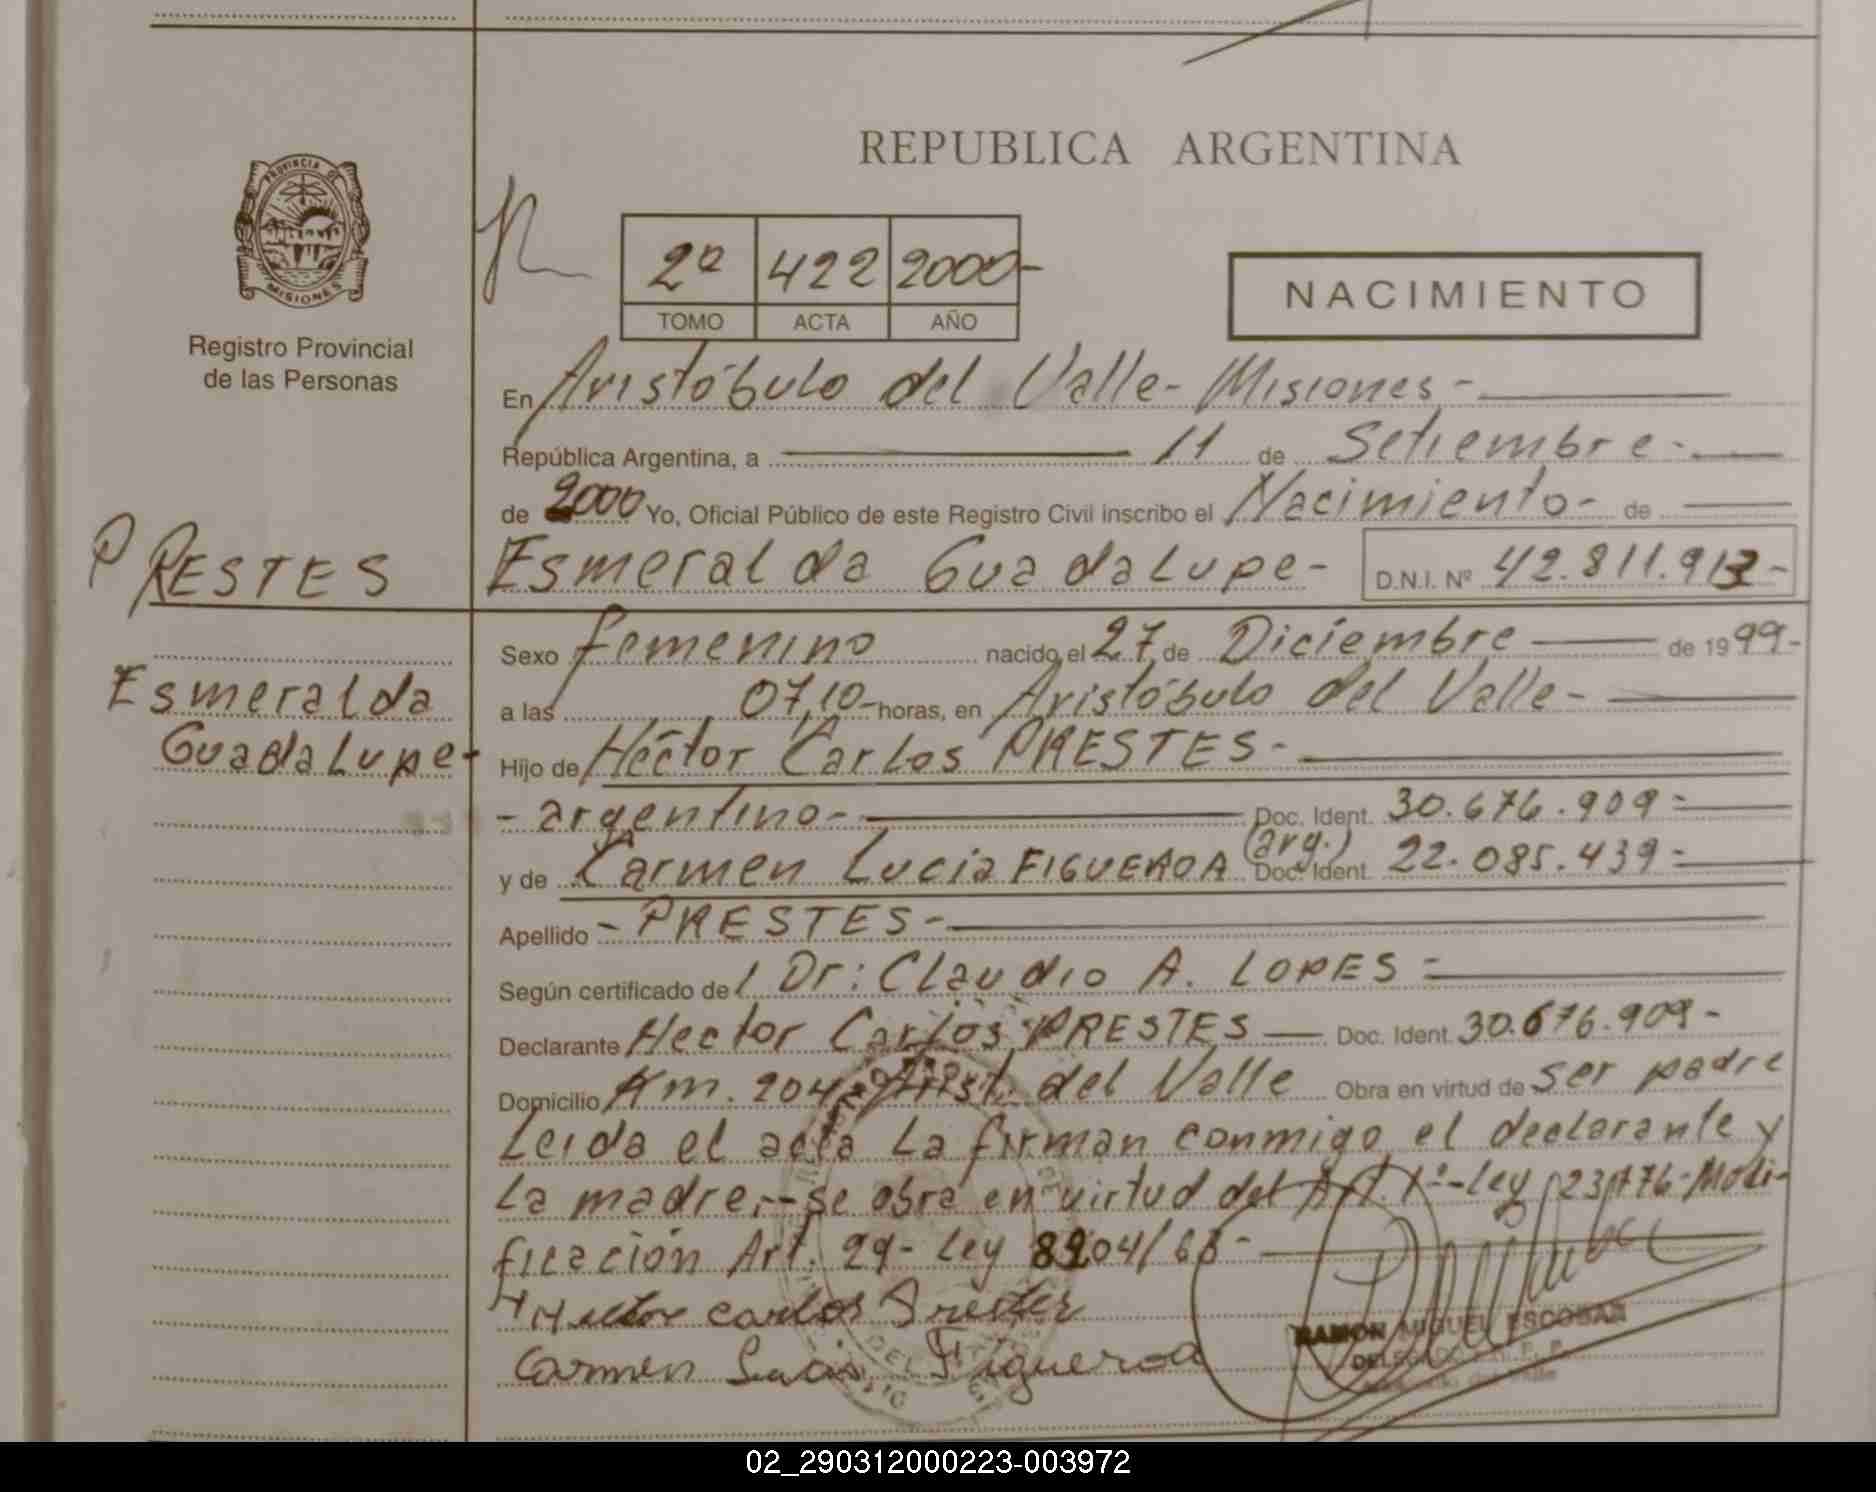 REPUBLICA ARGENTINA
PROVINCIA DE
MISIONES
Registro Provincial
de las Personas
2º 422 2000-
TOMO ACTA AÑO
NACIMIENTO
En Aristóbulo del Valle- Misiones-
República Argentina, a 11 de Setiembre-
de 2000 Yo, Oficial Público de este Registro Civil inscribo el Nacimiento- de
PRESTES
Esmeralda Guadalupe- D.N.I. Nº 42.811.913-
Esmeralda
Guadalupe-
Sexo femenino nacido el 27 de Diciembre de 1999-
a las 07,10- horas, en Aristóbulo del Valle-
Hijo de Héctor Carlos PRESTES-
-argentino- Doc. Ident. 30.676.909-
y de Carmen Lucia FIGUEROA (arg.) Doc. Ident. 22.085.439-
Apellido -PRESTES-
Según certificado del Dr: Claudio A. LOPES-
Declarante Hector Carlos PRESTES Doc. Ident. 30.676.909-
Domicilio Km. 204- Arist. del Valle Obra en virtud de ser padre
Leida el acta la firman conmigo el declarante y
la madre,--se obra en virtud del Art. 1º-ley 23776-Modi-
ficación Art. 29- ley 8204/63-
Hector carlos Prestes
Carmen Lucia Figueroa
RAMON MIGUEL ESCOBAR
02_290312000223-003972